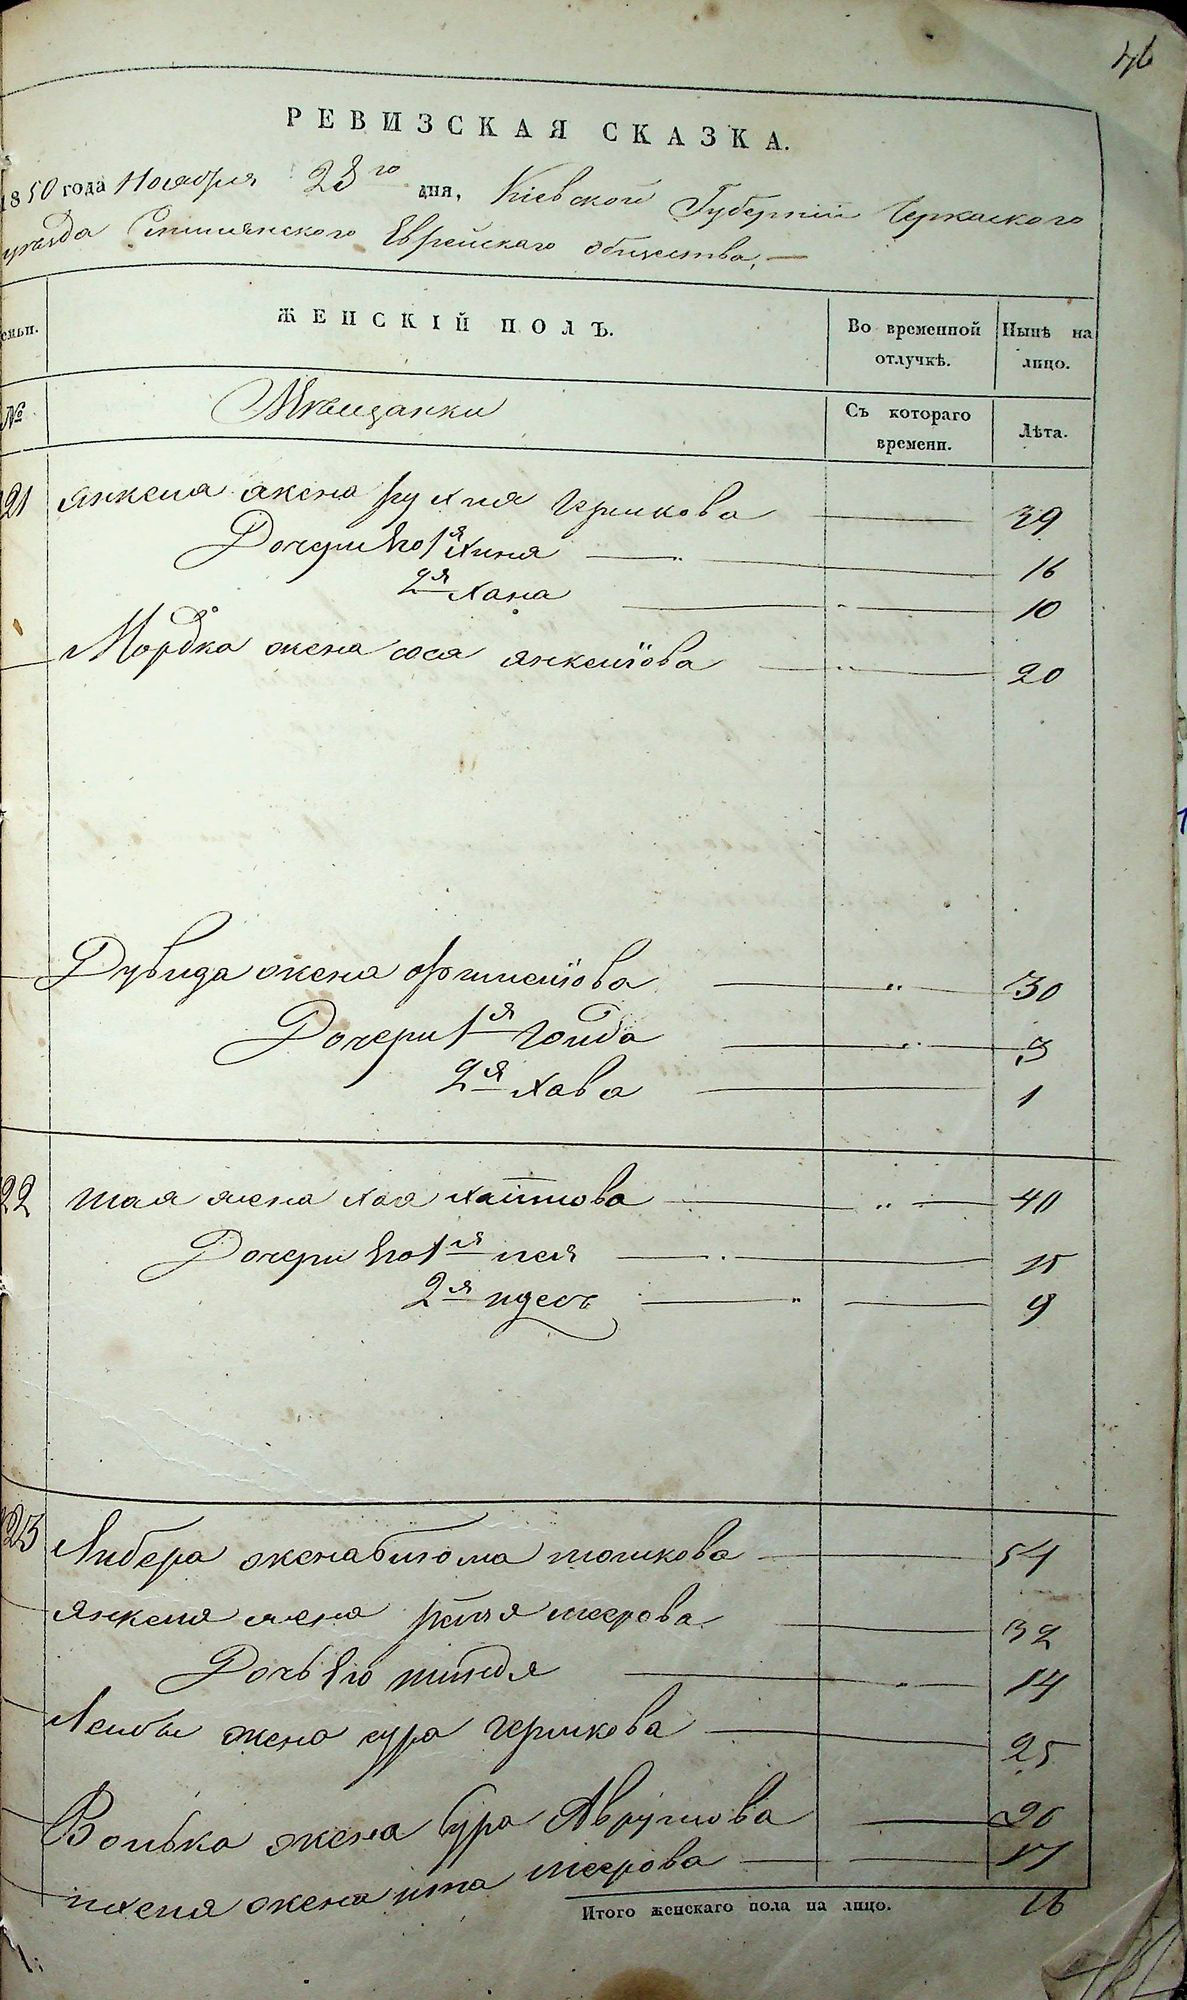 46
РЕВИЗСКАЯ СКАЗКА.
1850 года Ноября 28го дня, Кіевской Губерніи Черкаского
уѣзда Еврейскаго общества,
ЖЕНСКІЙ ПОЛЪ.
Во временной отлучкѣ.
Нынѣ на лицо.
№
Мѣщанки
Съ котораго времени.
Лѣта.
21 Янкеля жена рухля Гершкова 39
Дочери Его 1я Хиня 16
2я Хана 10
Мордка жена сося янкеліова 20
Дувида жена 30
Дочери 1я Голда 3
2я Хава 1
22 шая жена хая хаимова 40
Дочери Его 1я лея 15
2я идесъ 9
23 Либера жена тошкова 54
Янкеля жена меерова 32
Дочь Его 14
Лейбы жена сура гершкова 25
Волька жена Сура Аврумова 20
жена ита меерова 17
Итого женскаго пола на лицо. 16